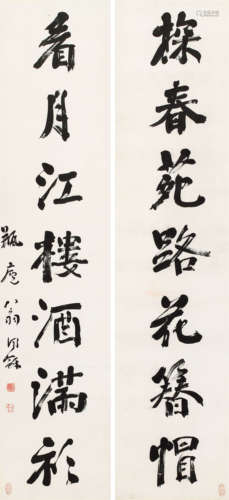 探春苑路花簪帽
看月江樓酒滿衫
瓶廬翁同龢